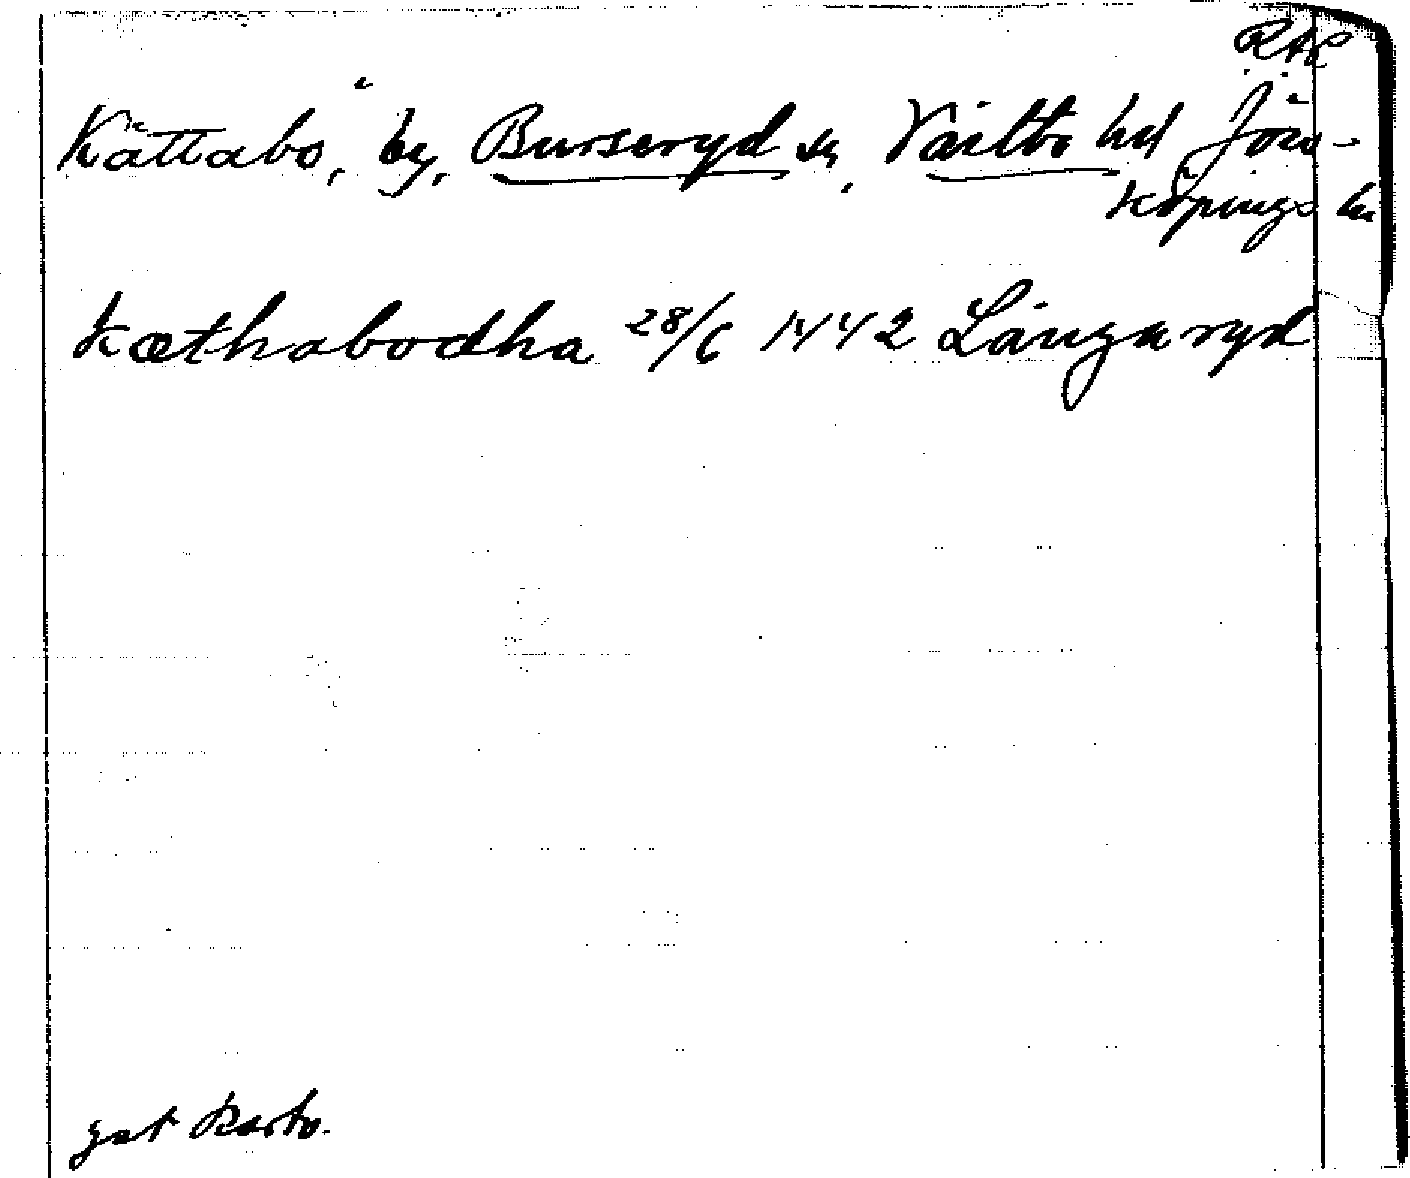 RAP
Kättabo, by, Burseryd sn, Västbo hd Jön-
köpings län
Kæthabodha 28/6 1442 Långaryd
gst Karto.